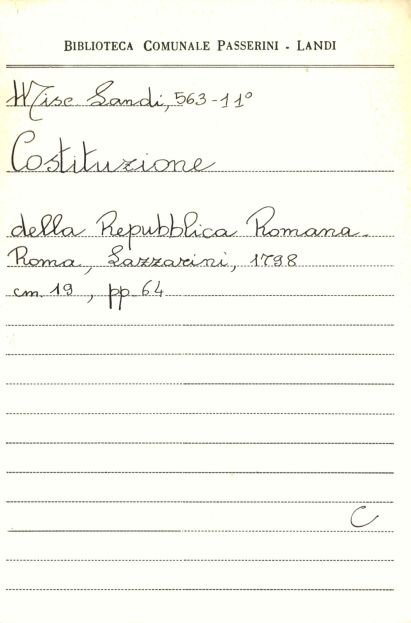 BIBLIOTECA COMUNALE PASSERINI - LANDI
Misc Landi, 563-11°
Costituzione
della Repubblica Romana.
Roma, Lazzarini, 1798
cm. 19, pp. 64
C